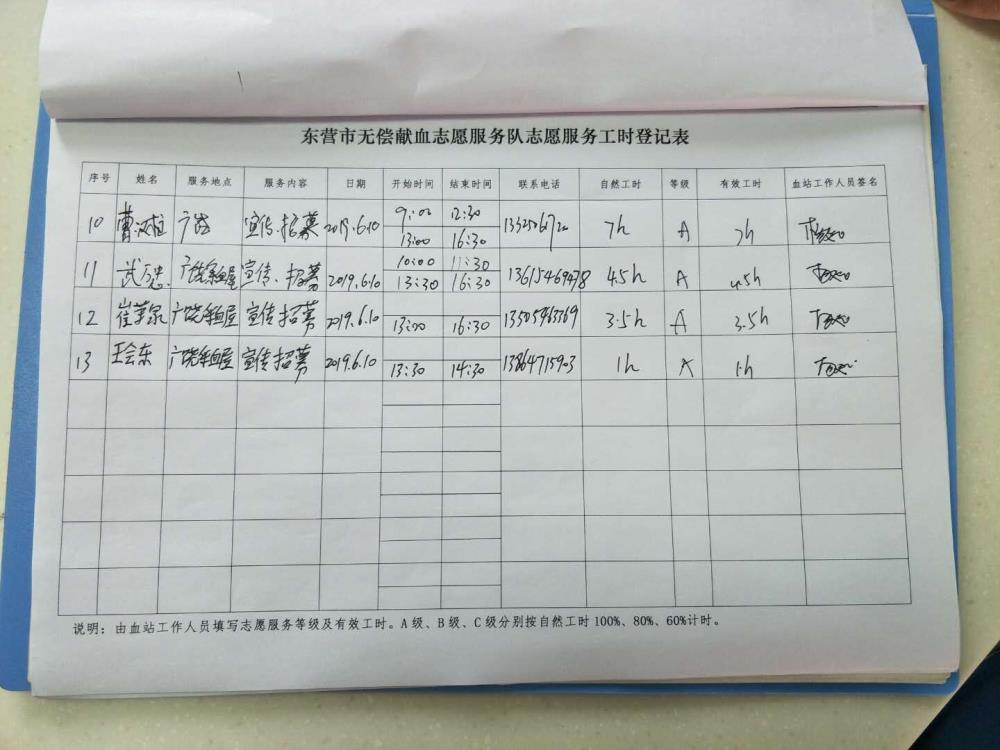 东营市无偿献血志愿服务队志愿服务工时登记表
序号 姓名 服务地点 服务内容 日期 开始时间 结束时间 联系电话 自然工时 等级 有效工时 血站工作人员签名
10 广饶 宣传.招募 2019.6.10 9:00 12:30 7h A 7h
13:00 16:30
11 武广忠 广饶献血屋 宣传.招募 2019.6.10 10:00 11:30 13615469478 4.5h A 4.5h
13:30 16:30
12 广饶献血屋 宣传招募 2019.6.10 13:00 16:30 3.5h A 3.5h
13 王会东 广饶献血屋 宣传招募 2019.6.10 13:30 14:30 13864715903 1h A 1h
说明：由血站工作人员填写志愿服务等级及有效工时。A级、B级、C级分别按自然工时100%、80%、60%计时。